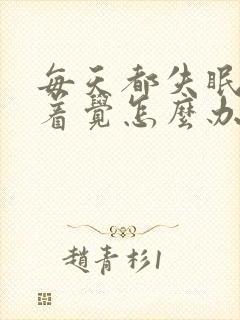 每天都失眠
着覺怎麼办
趙青杉1